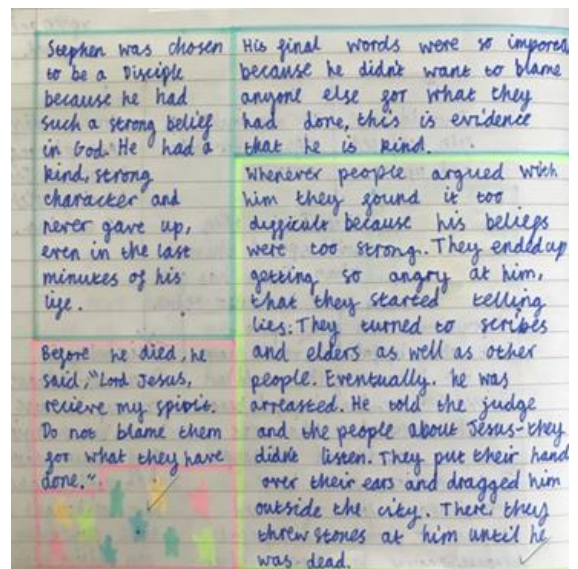 Stephen was chosen
to be a Disciple
because he had
such a strong belief
in God. He had a
kind, strong
character and
never gave up,
even in the last
minutes of his
life.
His final words were so importa
because he didn't want to blame
anyone else for what they
had done, this is evidence
that he is kind.
Before he died, he
said, "Lord Jesus,
recieve my spirit.
Do not blame them
for what they have
done.".
Whenever people argued with
him they found it too
difficult because his beliefs
were too strong. They ended up
getting so angry at him,
that they started telling
lies. They turned to scribes
and elders as well as other
people. Eventually. he was
arreasted. He told the judge
and the people about Jesus-they
didn't listen. They put their hand
over their ears and dragged him
outside the city. There, they
threw stones at him until he
was dead.